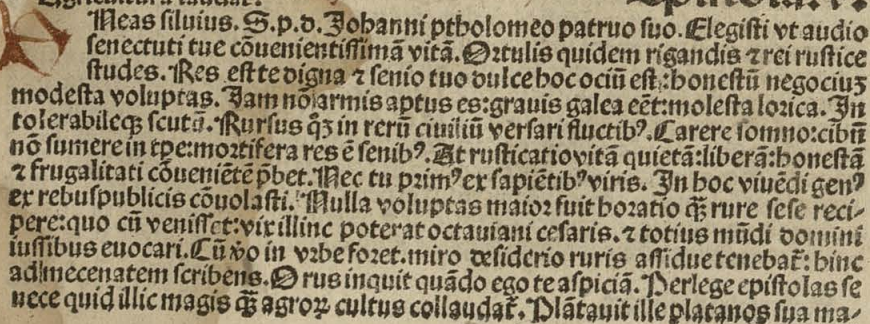 Agricultura laudat.
Neas siluius. S.p.d. Johanni ptholomeo patruo suo. Elegisti vt audio
senectuti tue cõuenientissimã vitã. Ortulis quidem rigandis ⁊ rei rustice
studes. Res est te digna ⁊ senio tuo dulce hoc ociũ est: honestũ negociuʒ
modesta voluptas. Jam nõ armis aptus es: grauis galea eẽt: molesta lorica. In
tolerabileqʒ scutũ. Rursus qʒ in rerũ ciuiliũ versari fluctibꝰ. Carere somno: cibũ
nõ sumere in tpe: mortifera res ẽ senibꝰ. At rusticatio vitã quietã: liberã: honestã
⁊ frugalitati cõueniẽtẽ p̃bet. Nec tu primꝰ ex sapiẽtibꝰ viris. In hoc viuẽdi genꝰ
ex rebuspublicis cõuolasti. Nulla voluptas maior fuit horatio q̃ʒ rure sese reci-
pere: quo cũ venisset: vix illinc poterat octauiani cesaris. ⁊ totius mũdi domini
iussibus euocari. Cũ v̊o in vrbe foret. miro desiderio ruris assidue tenebat̃: hinc
ad mecenatem scribens. O rus inquit quãdo ego te aspiciã. Perlege epistolas se
nece quid illic magis q̃ʒ agroꝝ cultus collaudat̃. Plãtauit ille platanos sua ma-